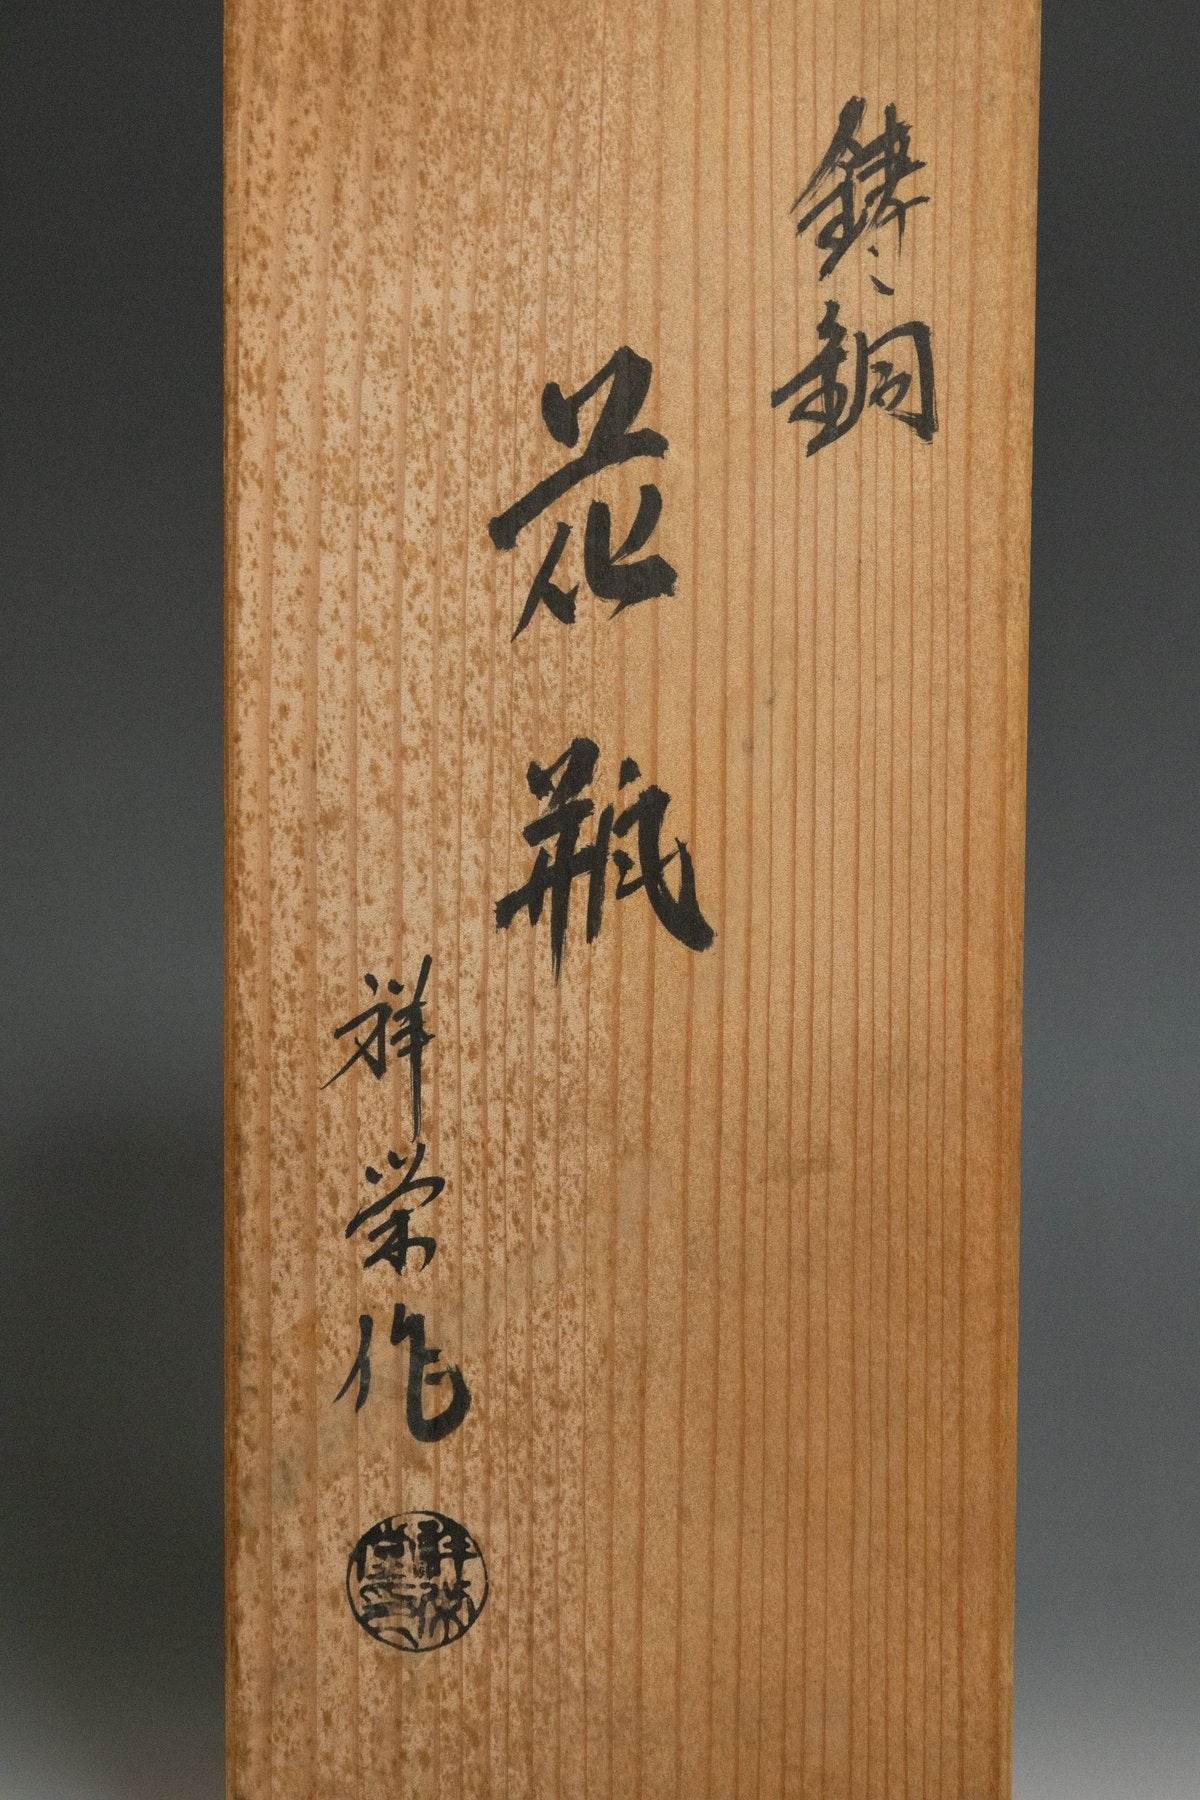 鋳銅
花瓶
祥栄作